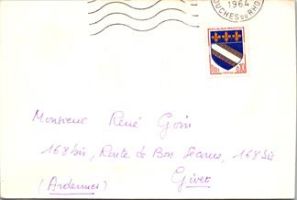 1964
BOUCHES DU RHÔ
Monsieur René Goin
168 bis, Route de Bon Secours, 168 bis
(Ardennes) Givet